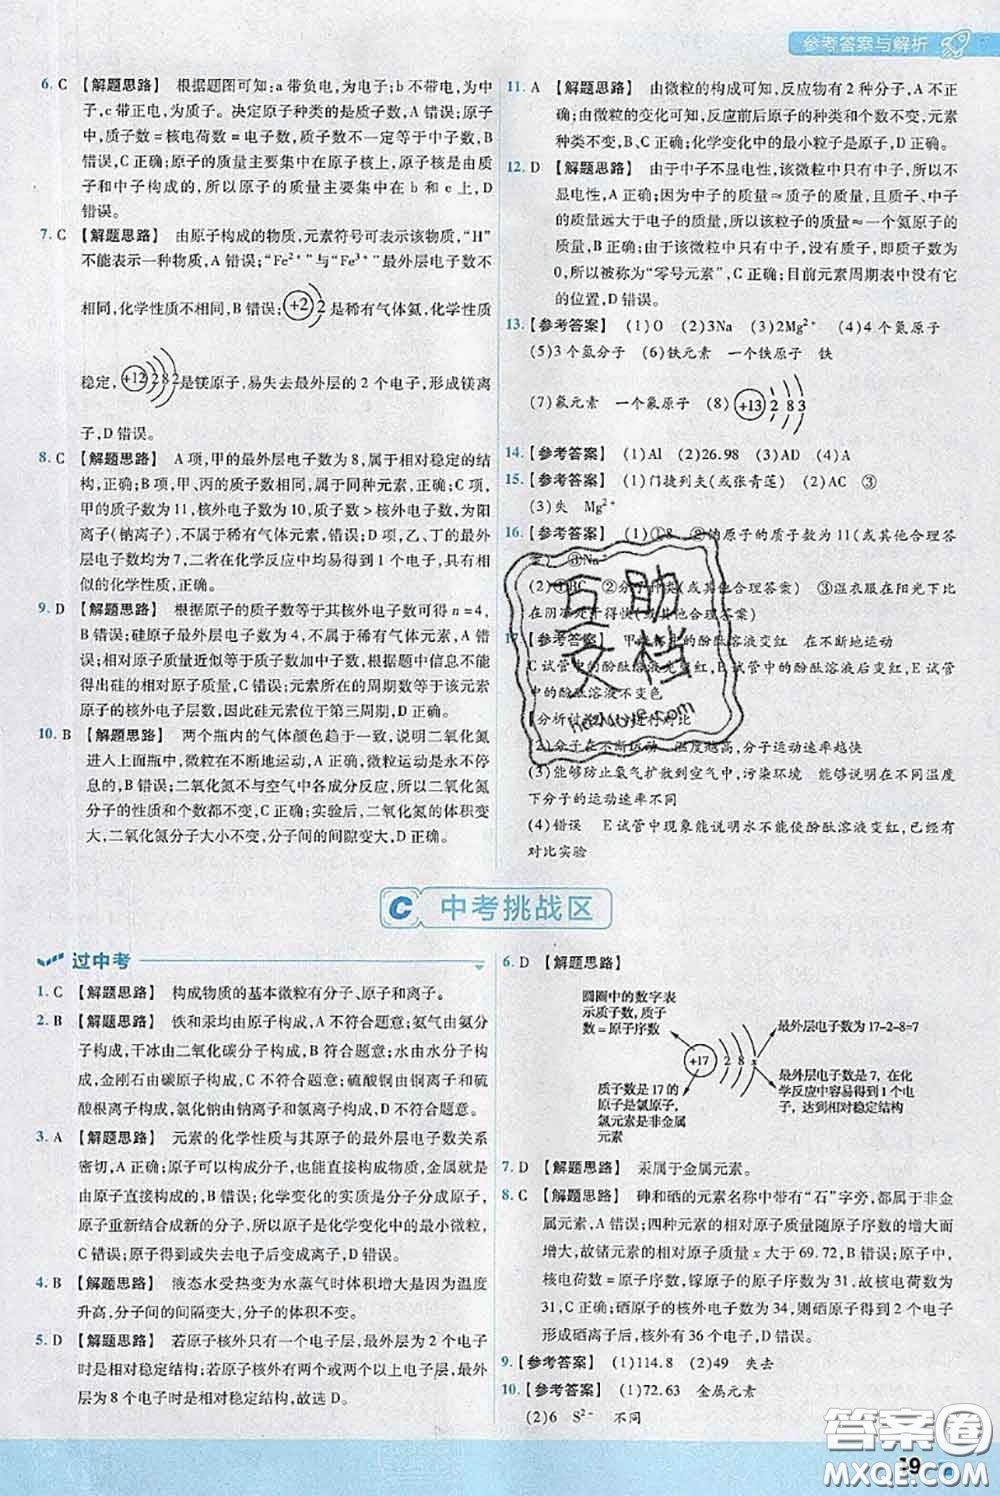 参考答案与解析
6. C 【解题思路】 根据题图可知:a带负电,为电子;b不带电,为中子,c带正电,为质子。决定原子种类的是质子数,A错误;原子
中,质子数=核电荷数=电子数,质子数不一定等于中子数,B
错误,C正确;原子的质量主要集中在原子核上,原子核是由质
子和中子构成的,所以原子的质量主要集中在b和c上,D
错误。
7. C 【解题思路】 由原子构成的物质,元素符号可表示该物质,“H”
不能表示一种物质,A错误;“Fe²⁺”与“Fe³⁺”最外层电子数不
相同,化学性质不相同,B错误; +2 2 是稀有气体氦,化学性质
稳定, +12 2 8 2 是镁原子,易失去最外层的2个电子,形成镁离
子,D错误。
8. C 【解题思路】 A项,甲的最外层电子数为8,属于相对稳定的结
构,正确;B项,甲、丙的质子数相同,属于同种元素,正确;C项,
甲的质子数为11,核外电子数为10,质子数>核外电子数,为阳
离子(钠离子),不属于稀有气体元素,错误;D项,乙、丁的最外
层电子数均为7,二者在化学反应中均易得到1个电子,具有相
似的化学性质,正确。
9. D 【解题思路】 根据原子的质子数等于其核外电子数可得n=4,
A错误;硅原子最外层电子数为4,不属于稀有气体元素,B错
误;相对原子质量近似等于质子数加中子数,根据图中信息不
能得出硅的相对原子质量,C错误;元素所在的周期数等于该元素
原子的核外电子层数,因此硅元素位于第三周期,D正确。
10. B 【解题思路】 两个瓶内的气体颜色趋于一致,说明二氧化氮
进入上面的瓶中,微粒在不断地运动,A正确;微粒运动是永不停
息的,B错误;二氧化氮不与空气中各成分反应,所以二氧化氮
分子的性质和个数都不变,C正确;实验后,二氧化氮的体积变
大,二氧化氮分子大小不变,分子间的间隙变大,D正确。
11. A 【解题思路】 由微粒的构成可知,反应物有2种分子,A不正
确;由微粒的变化可知,反应前后原子的种类和个数不变,元素
种类不变,B、C正确;化学变化中的最小粒子是原子,D正确。
12. D 【解题思路】 由于中子不显电性,该微粒中只有中子,所以不
显电性,A正确;因为中子的质量≈质子的质量,且质子、中子
的质量远大于电子的质量,所以该粒子的质量≈一个氦原子的
质量,B正确;由于该微粒中只有中子,没有质子,即质子数为
0,所以被称为“零号元素”,C正确;目前元素周期表中没有它
的位置,D错误。
13.【参考答案】 (1)O (2)3Na (3)2Mg²⁺ (4)4个氮原子
(5)3个氮分子 (6)铁元素 一个铁原子 铁
(7)氟元素 一个氟原子 (8) +13 2 8 3
14.【参考答案】 (1)Al (2)26.98 (3)AD (4)A
15.【参考答案】 (1)门捷列夫(或张青莲) (2)AC ③
(3)失 Mg²⁺
16.【参考答案】 (1)①8 ②的原子的质子数为11(或其他合理答
案) ③Na⁺
(2)①BC ②分子种类(或其他合理答案) ③湿衣服在阳光下比
在阴凉处干得快(或其他合理答案)
17.【参考答案】 中的酚酞溶液变红 在不断地运动
C试管中的酚酞溶液后变红,E试
管中的酚酞溶液不变色
[分析讨论] 进行对比
(2)分子在不断运动 温度越高,分子运动速率越快
(3)能够防止氨气扩散到空气中,污染环境 能够说明在不同温度
下分子的运动速率不同
(4)错误 E试管中现象能说明水不能使酚酞溶液变红,已经有
对比实验
百助
文档
C 中考挑战区
过中考
1. C 【解题思路】 构成物质的基本微粒有分子、原子和离子。
2. B 【解题思路】 铁和汞均由原子构成,A不符合题意;氨气由氨分
子构成,干冰由二氧化碳分子构成,B符合题意;水由水分子构
成,金刚石由碳原子构成,C不符合题意;硫酸铜由铜离子和硫
酸根离子构成,氯化钠由钠离子和氯离子构成,D不符合题意。
3. A 【解题思路】 元素的化学性质与其原子的最外层电子数关系
密切,A正确;原子可以构成分子,也能直接构成物质,如铁是由
原子直接构成的,B错误;化学变化的实质是分子分成原子,
原子重新结合成新的分子,所以原子是化学变化中的最小微粒,
C错误;原子得到或失去电子后变成离子,D错误。
4. B 【解题思路】 液态水受热变为水蒸气时体积增大是因为温度
升高,分子间的间隔变大,分子的体积不变。
5. D 【解题思路】 若原子核外只有一个电子层,最外层为2个电子
时是相对稳定结构;若原子核外有两个或两个以上电子层,最外层
为8个电子时是相对稳定结构,故选D。
6. D 【解题思路】
圆圈中的数字表
示质子数,质子
数=原子序数
+17 2 8 x
最外层电子数为17-2-8=7
质子数是17的
原子是氯原子,
氯元素是非金属
元素
最外层电子数是7,在化
学反应中容易得到1个电
子,达到相对稳定结构
7. D 【解题思路】 汞属于金属元素。
8. C 【解题思路】 砷和硒的元素名称中带有“石”字旁,都属于非金
属元素,A错误;四种元素的相对原子质量随原子序数的增大而
增大,故锗元素的相对原子质量x大于69.72,B错误;原子中,
核电荷数=原子序数,镓原子的原子序数为31,故核电荷数为
31,C正确;硒原子的核外电子数为34,则硒原子得到2个电子
形成硒离子后,核外有36个电子,D错误。
9.【参考答案】 (1)114.8 (2)49 失去
10.【参考答案】 (1)72.63 金属元素
(2)6 S²⁻ 不同
答案圈
MXQE.COM
19